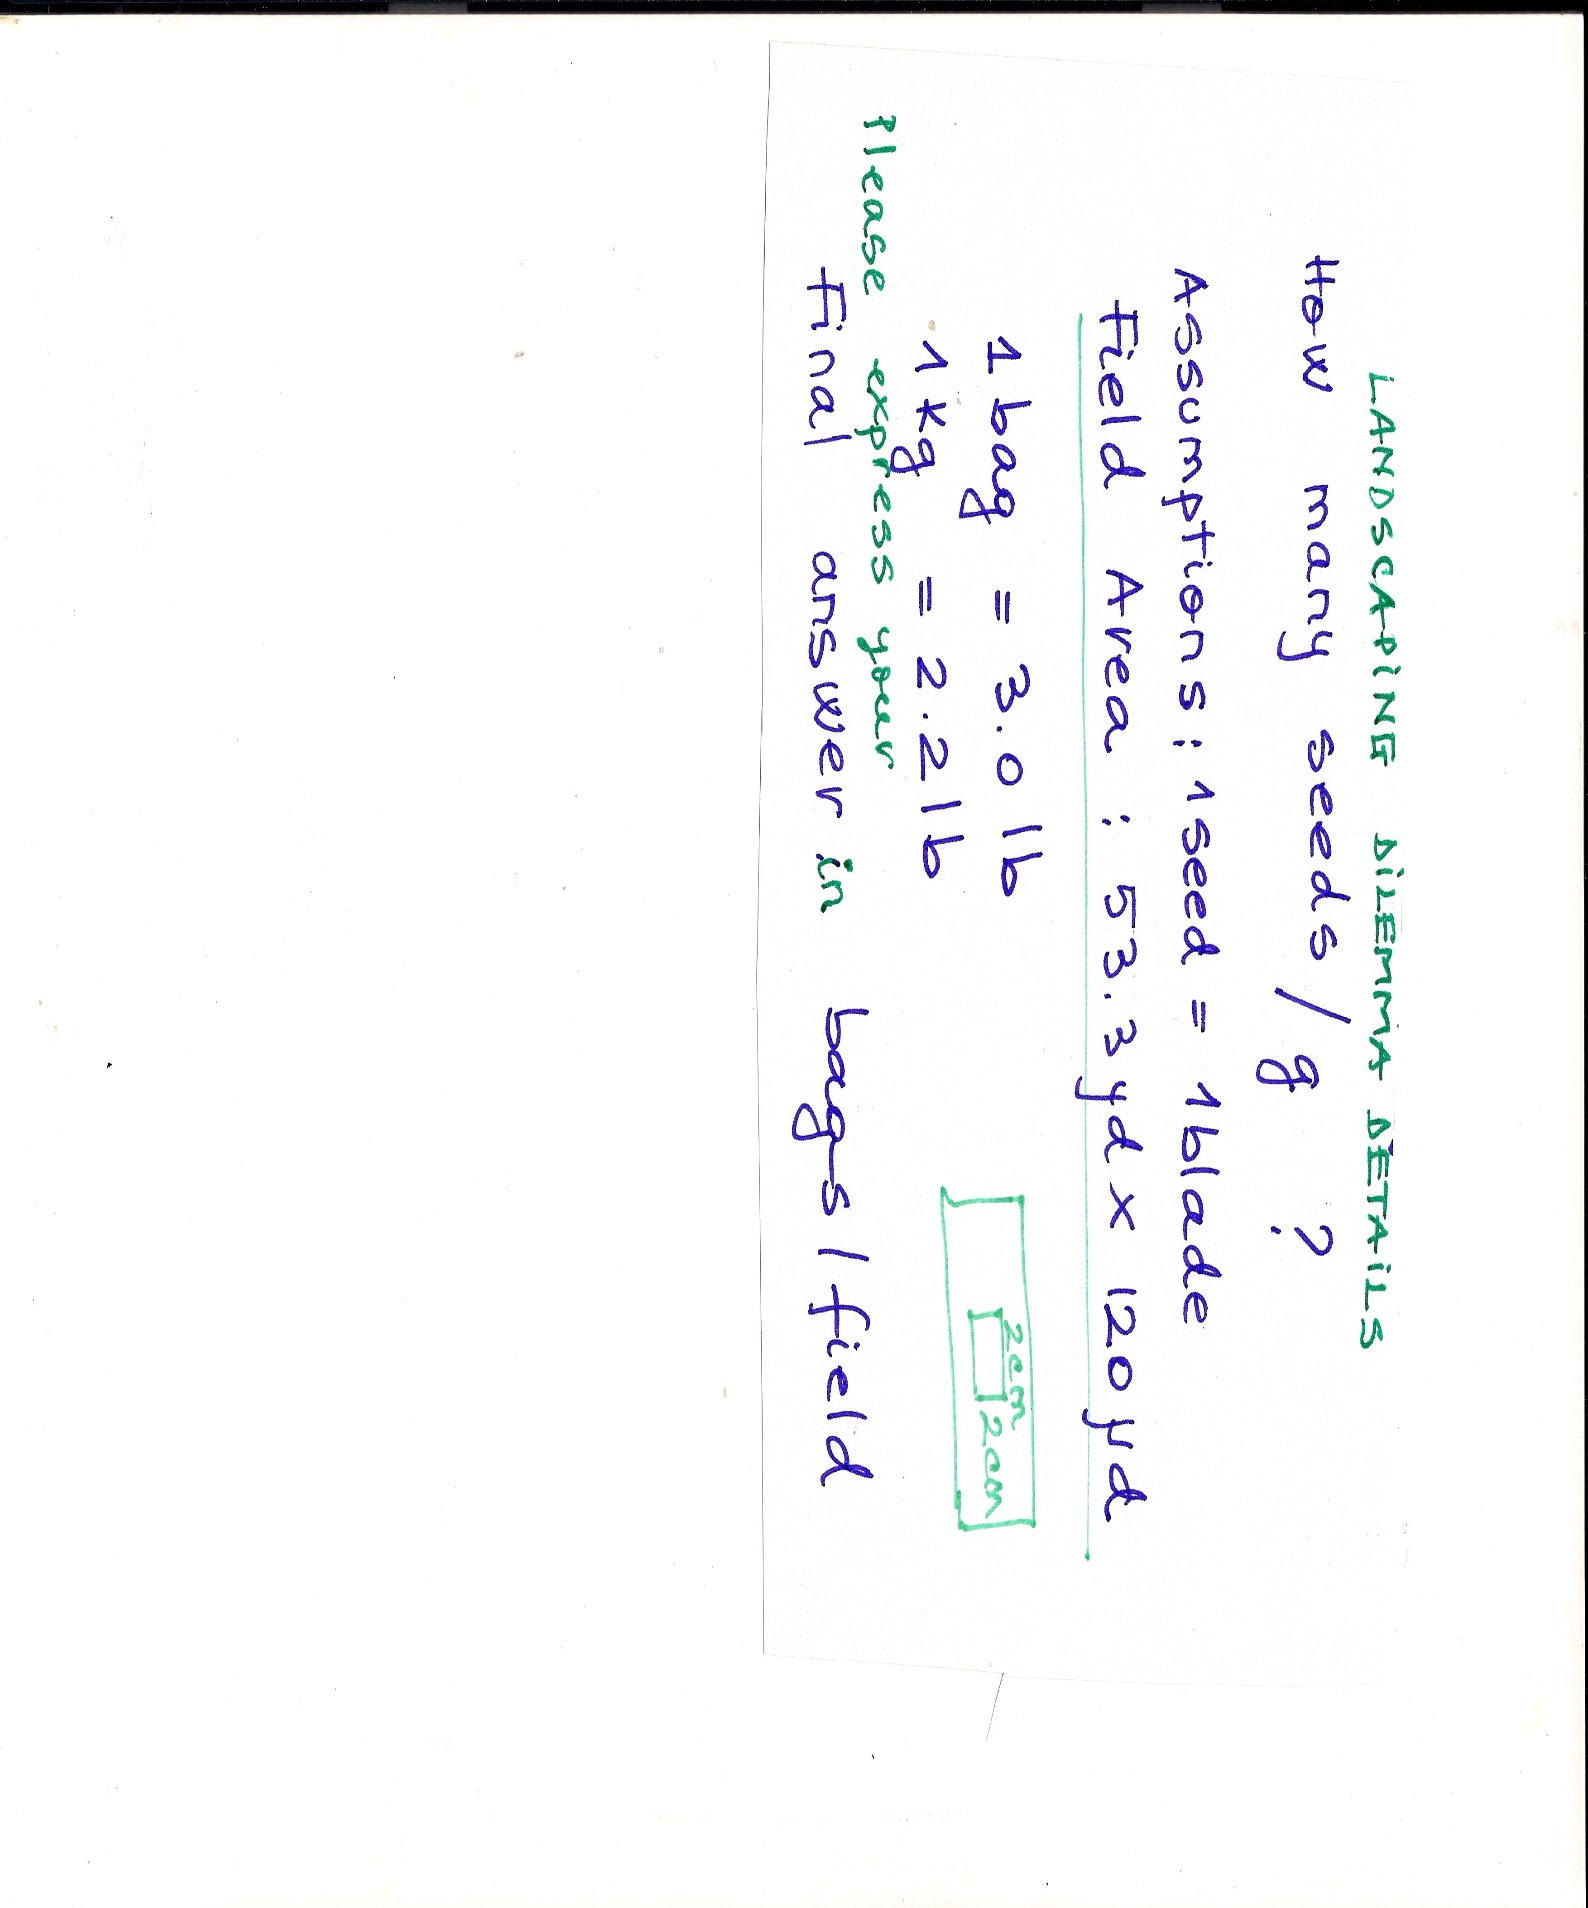 LANDSCAPiNG DiLEMMA DETAiLS
How many seeds/g ?
Assumptions: 1seed = 1blade
Field Area : 53.3yd x 120yd
1 bag = 3.0 lb
1 kg = 2.2 lb
2cm
2cm
Please express your
Final answer in bags/field